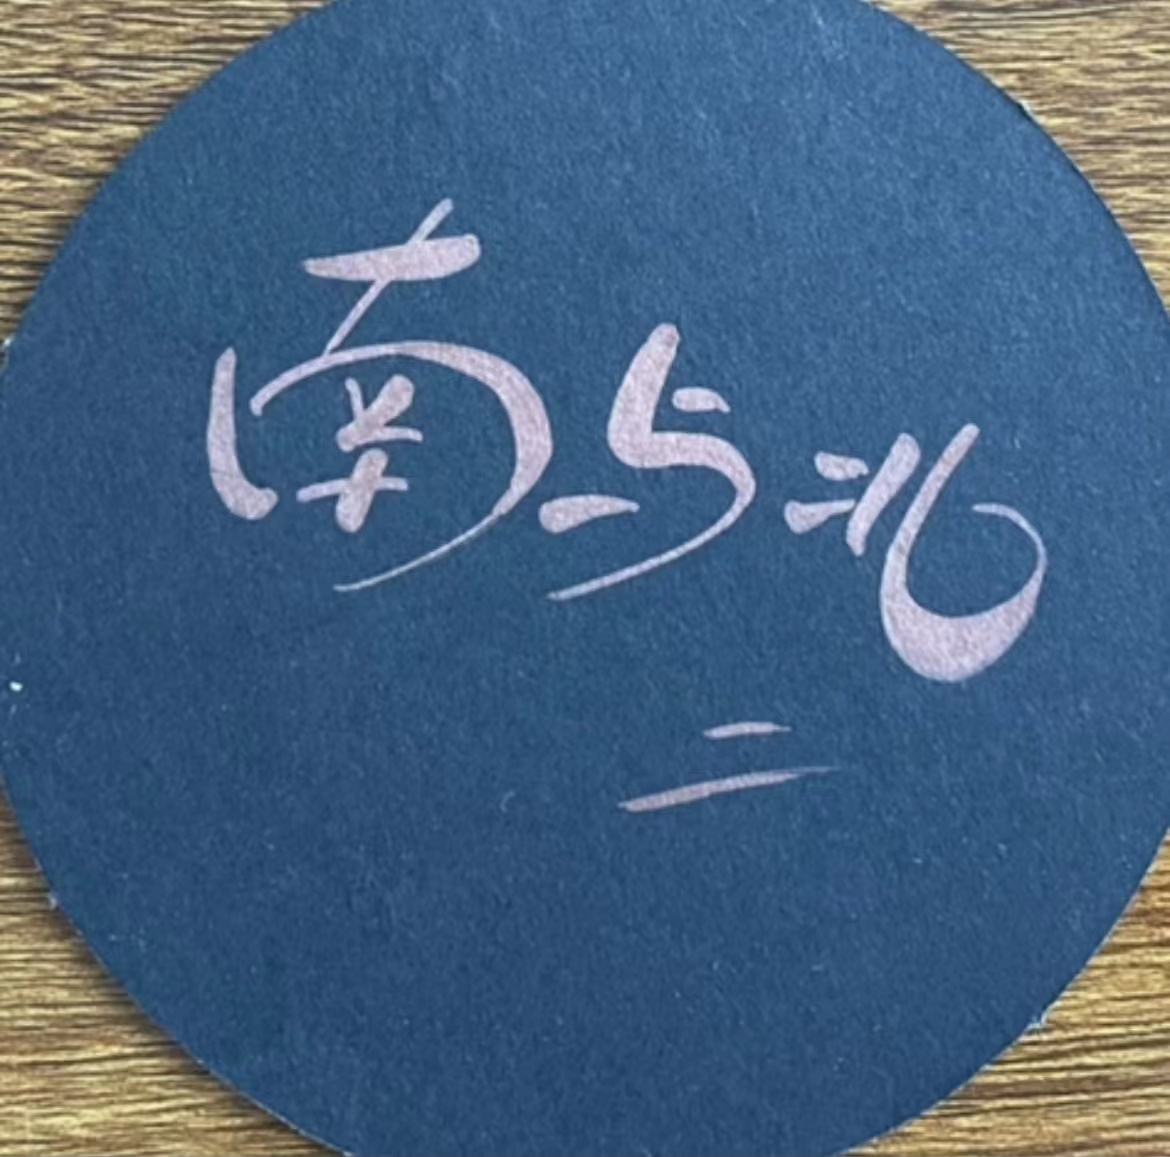 南与北
二